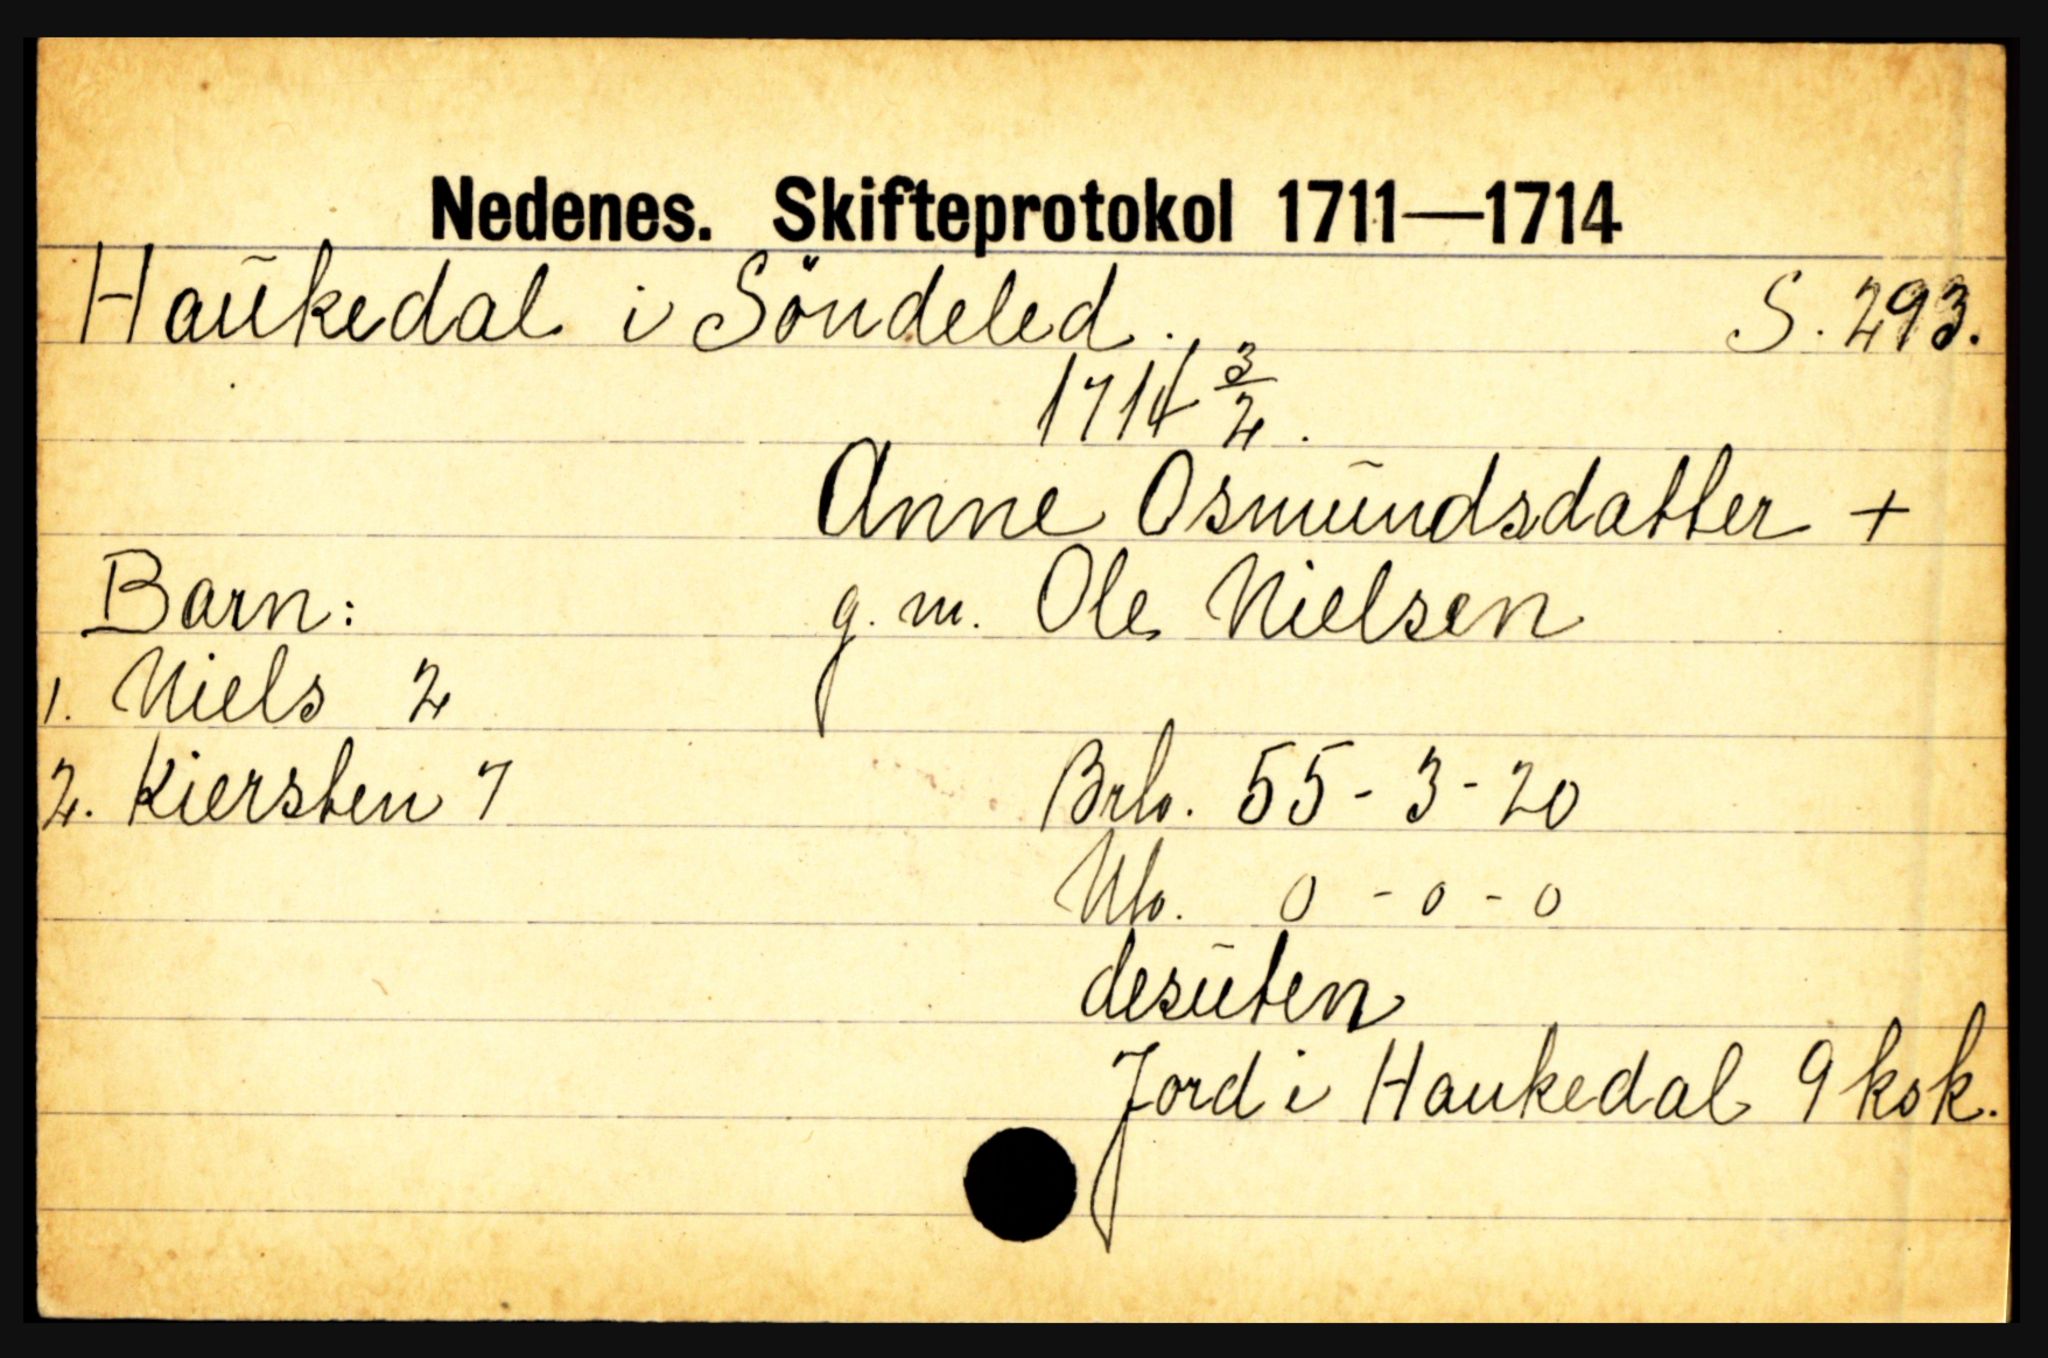 Nedenes. Skifteprotokol 1711—1714
Haukedal i Söndeled. S. 293.
1714 3/2.
Anne Osmundsdatter +
Barn: g. m. Ole Nielsen
1. Niels 2
2. Kiersten 7 Brb. 55 - 3 - 20
Nb. 0 - 0 - 0
desuten
Jord i Haukedal 9 ksk.